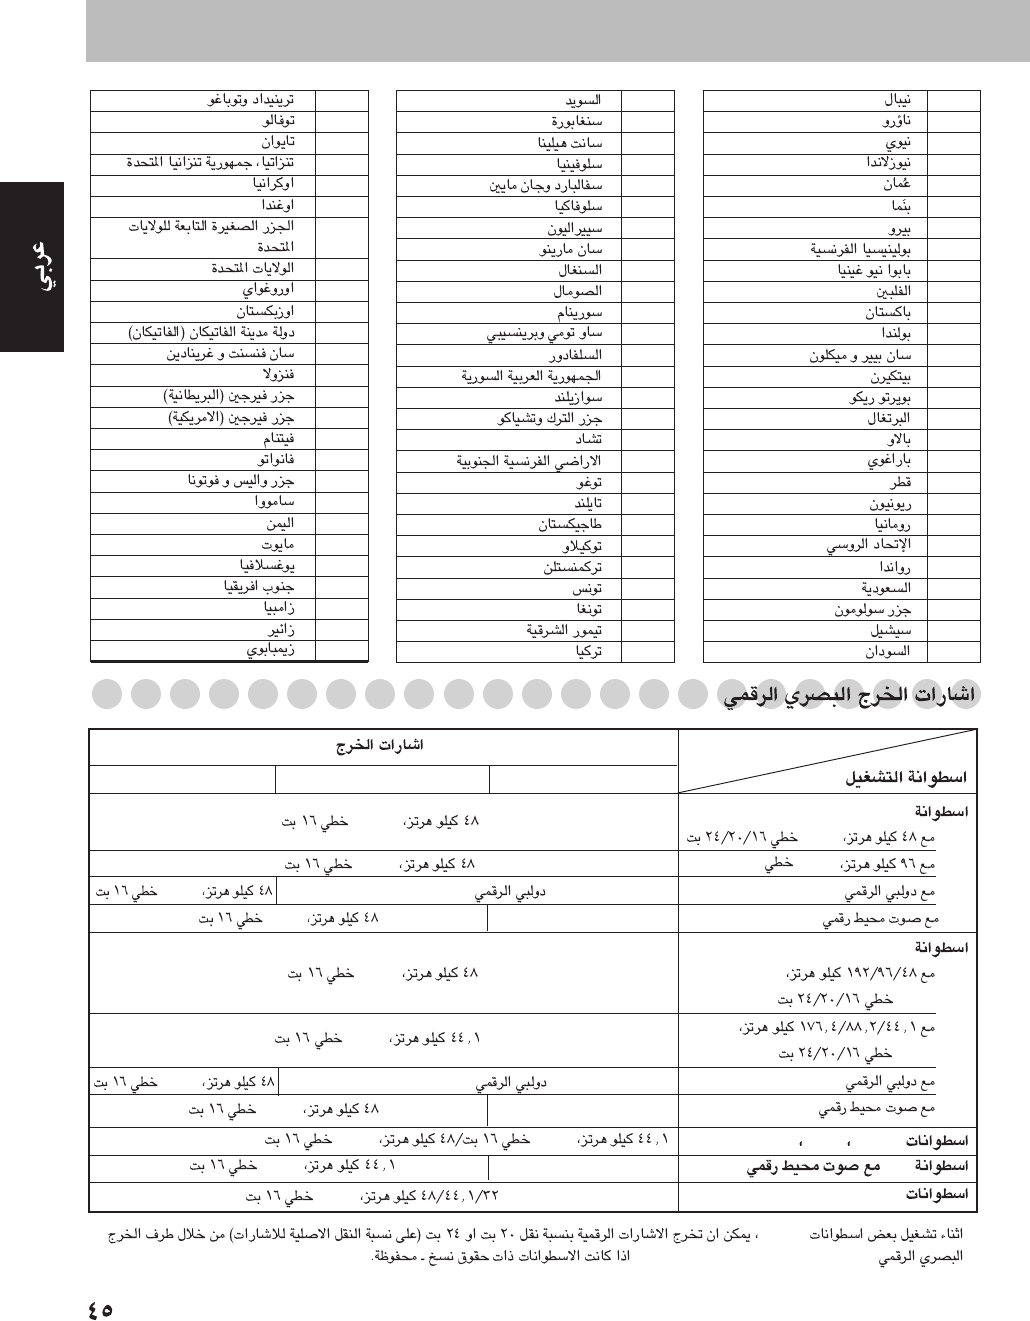 عربي
نيبال
ناؤرو
نيوي
نيوزلاندا
عُمان
بنَما
بيرو
بولينيسيا الفرنسية
بابوا نيو غينيا
الفلبين
باكستان
بولندا
سان بيير و ميكلون
بيتكيرن
بويرتو ريكو
البرتغال
بالاو
باراغوي
قطر
ريونيون
رومانيا
الإتحاد الروسي
رواندا
السعودية
جزر سولومون
سيشيل
السودان
السويد
سنغابورة
سانت هيلينا
سلوفينيا
سفالبارد وجان مايين
سلوفاكيا
سييراليون
سان مارينو
السنغال
الصومال
سورينام
ساو تومي وبرينسيبي
السلفادور
الجمهورية العربية السورية
سوازيلند
جزر الترك وتشياكو
تشاد
الاراضي الفرنسية الجنوبية
توغو
تايلند
طاجيكستان
توكيلاو
تركمنستلن
تونس
تونغا
تيمور الشرقية
تركيا
ترينيداد وتوباغو
توفالو
تايوان
تنزاتيا، جمهورية تنزانيا المتحدة
اوكرانيا
اوغندا
الجزر الصغيرة التابعة للولايات
المتحدة
الولايات المتحدة
اوروغواي
اوزبكستان
دولة مدينة الفاتيكان (الفاتيكان)
سان فنسنت و غرينادين
فنزولا
جزر فيرجين (البريطانية)
جزر فيرجين (الامريكية)
فيتنام
فانواتو
جزر واليس و فوتونا
سامووا
اليمن
مايوت
يوغسلافيا
جنوب افريقيا
زامبيا
زائير
زيمبابوي
اشارات الخرج البصري الرقمي
اشارات الخرج
اسطوانة التشغيل
اسطوانة
مع ٤٨ كيلو هرتز، خطي ٢٤/٢٠/١٦ بت
٤٨ كيلو هرتز، خطي ١٦ بت
مع ٩٦ كيلو هرتز، خطي
٤٨ كيلو هرتز، خطي ١٦ بت
مع دولبي الرقمي
دولبي الرقمي
٤٨ كيلو هرتز، خطي ١٦ بت
مع صوت محيط رقمي
٤٨ كيلو هرتز، خطي ١٦ بت
اسطوانة
مع ١٩٢/٩٦/٤٨ كيلو هرتز،
خطي ٢٤/٢٠/١٦ بت
٤٨ كيلو هرتز، خطي ١٦ بت
مع ١٧٦,٤/٨٨,٢/٤٤,١ كيلو هرتز،
خطي ٢٤/٢٠/١٦ بت
٤٤,١ كيلو هرتز، خطي ١٦ بت
مع دولبي الرقمي
دولبي الرقمي
٤٨ كيلو هرتز، خطي ١٦ بت
مع صوت محيط رقمي
٤٨ كيلو هرتز، خطي ١٦ بت
اسطوانات ، ،
٤٤,١ كيلو هرتز، خطي ١٦ بت/٤٨ كيلو هرتز، خطي ١٦ بت
اسطوانة مع صوت محيط رقمي
٤٤,١ كيلو هرتز، خطي ١٦ بت
اسطوانات
٤٨/٤٤,١/٣٢ كيلو هرتز، خطي ١٦ بت
اثناء تشغيل بعض اسطوانات ، يمكن ان تخرج الاشارات الرقمية بنسبة نقل ٢٠ بت او ٢٤ بت (على نسبة النقل الاصلية للاشارات) من خلال طرف الخرج
البصري الرقمي اذا كانت الاسطوانات ذات حقوق نسخ - محفوظة.
٤٥